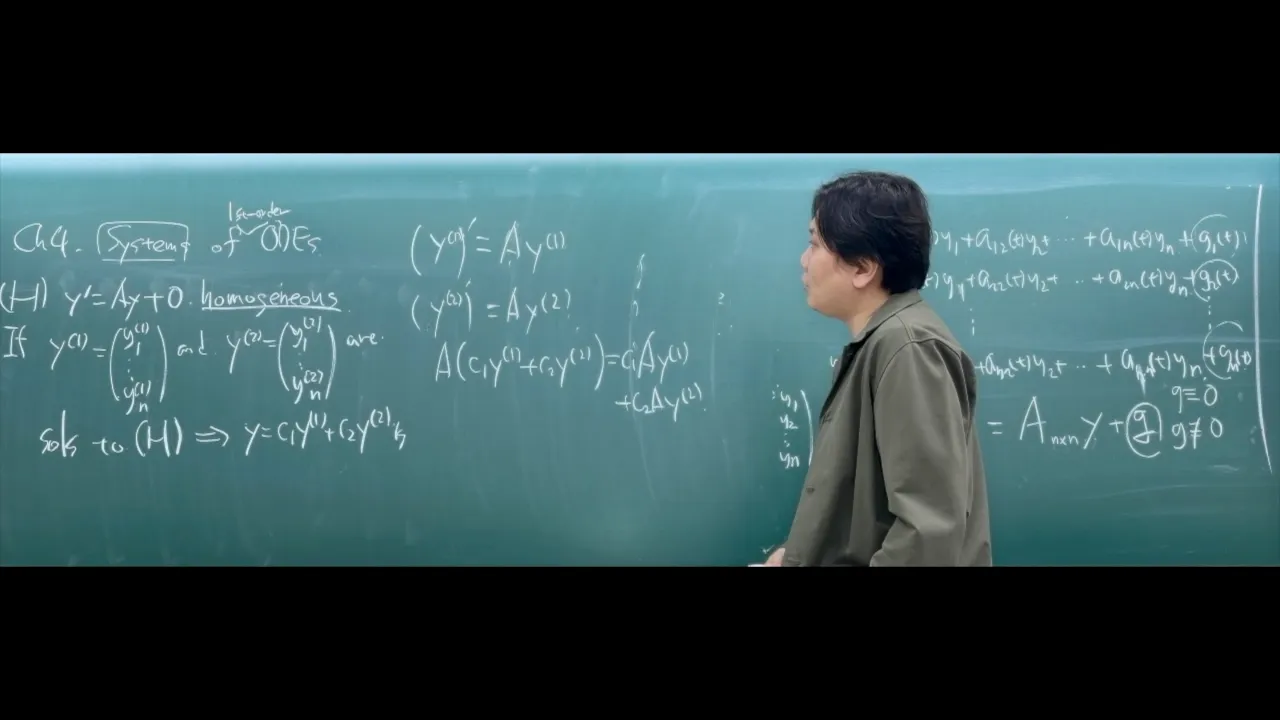 1st-order
Ch4. Systems of ODEs
(H) y' = Ay + 0. homogeneous
If y⁽¹⁾ = (y₁⁽¹⁾ ⋮ yₙ⁽¹⁾) and y⁽²⁾ = (y₁⁽²⁾ ⋮ yₙ⁽²⁾) are
sols to (H) ⇒ y = c₁y⁽¹⁾ + c₂y⁽²⁾ is
(y⁽¹⁾)' = Ay⁽¹⁾
(y⁽²⁾)' = Ay⁽²⁾
A(c₁y⁽¹⁾ + c₂y⁽²⁾) = c₁Ay⁽¹⁾
+ c₂Ay⁽²⁾.
)y₁ + a₁₂(t)y₂ + ⋯ + a₁ₙ(t)yₙ + g₁(t)
y₁ + a₂₂(t)y₂ + ⋯ + a₂ₙ(t)yₙ + g₂(t)
⋮ ⋮
+ aₙ₂(t)y₂ + ⋯ + aₙₙ(t)yₙ + gₙ(t)
y₁
y₂
⋮
yₙ
= Aₙₓₙ y + g
g ≡ 0
g ≢ 0